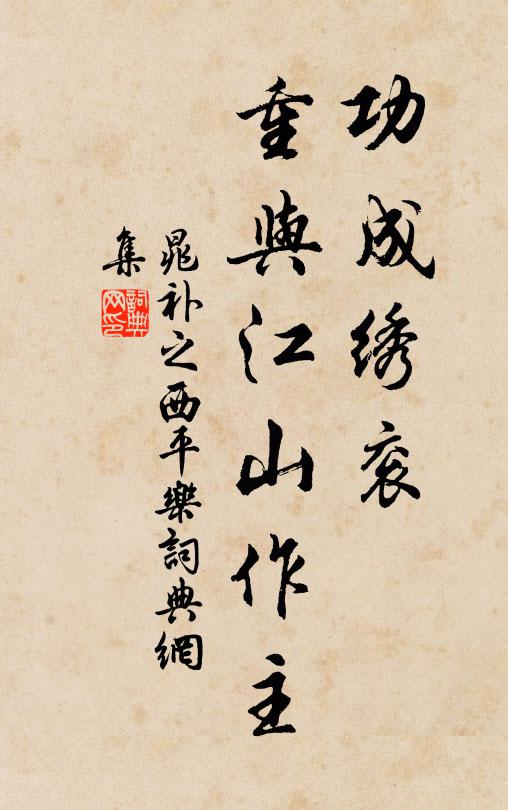 功成绣衮
重與江山作主
晁补之西平樂詞典網
集
詞典网印